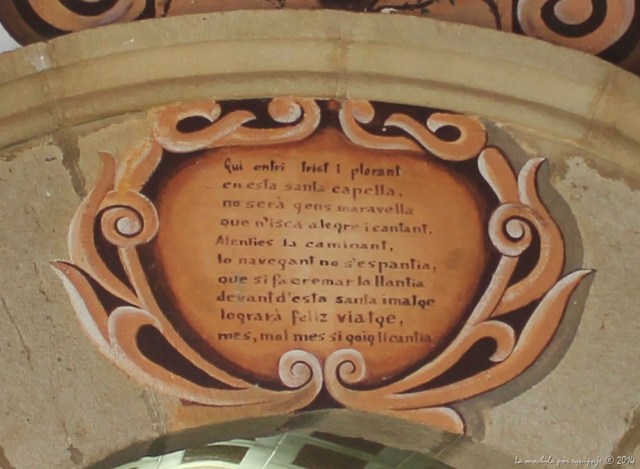 Qui entri trist i plorant
en esta santa capella,
no serà gens maravella
que n'isca alegre i cantant.
Atenties la caminant,
lo navegant no s'espantia,
que si fa cremar la llantia
devant d'esta santa imatge
lograrà feliz viatge,
mes, mol mes si goig li cantia
La mochila por equipaje © 2014